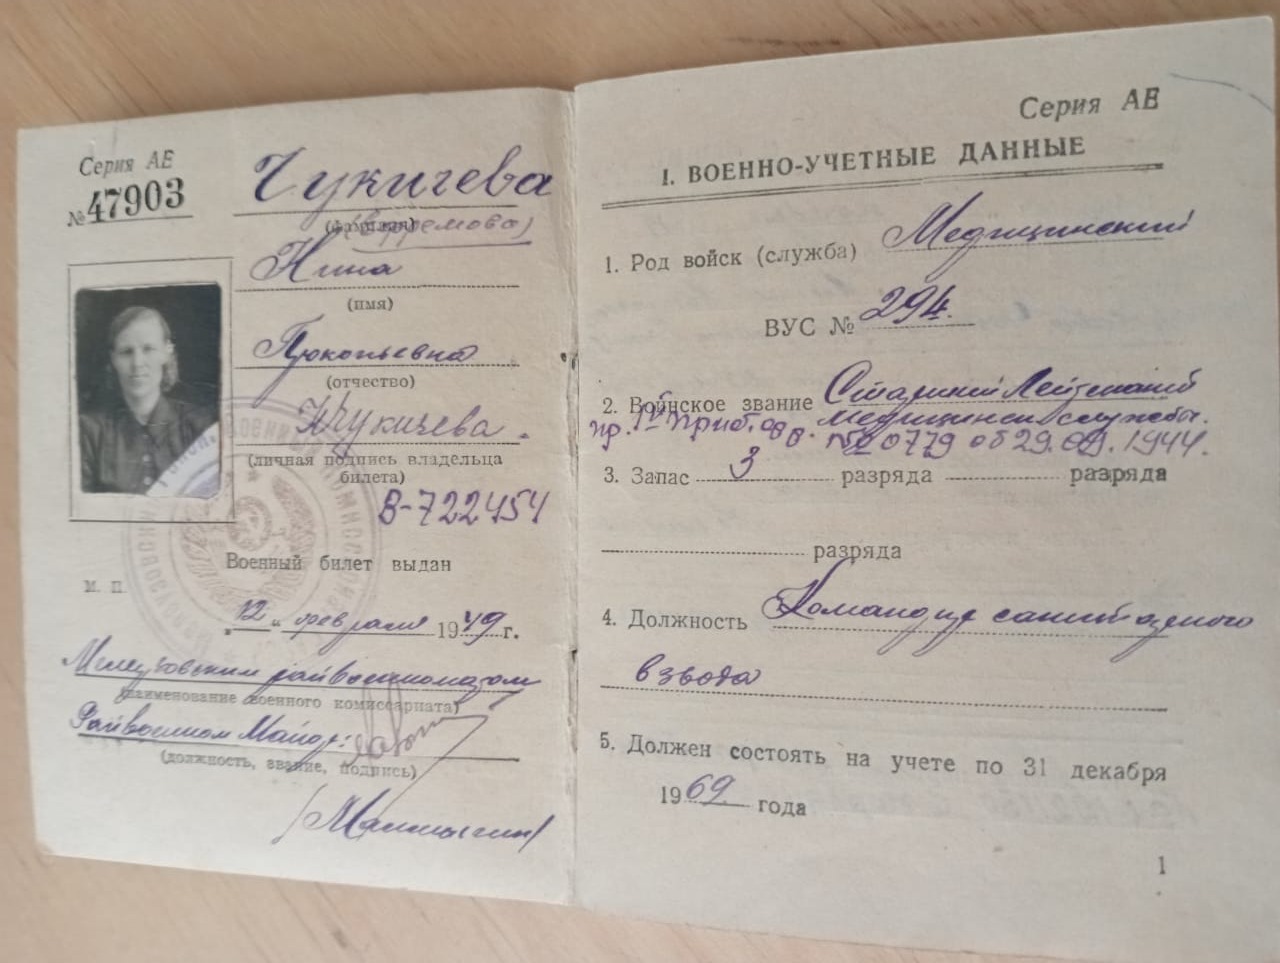 Серия АЕ
№ 47903
Чукичева
(фамилия) (Ефремова)
Нина
(имя)
Прокопьевна
(отчество)
НЧукичева.
(личная подпись владельца
билета)
В-722454
Военный билет выдан
М. П.
„12“ февраля 1949 г.
райвоенкоматом
(наименование военного комиссариата)
Райвоенком Майор:
(должность, звание, подпись)
Серия АЕ
I. ВОЕННО-УЧЕТНЫЕ ДАННЫЕ
1. Род войск (служба) Медицинский
ВУС № 294.
2. Воинское звание Старший Лейтенант
медицинской службы.
пр. Приб. №0779 от 29.09.1944.
3. Запас 3 разряда разряда
разряда
4. Должность Командир санитарного
взвода
5. Должен состоять на учете по 31 декабря
1969 года
1